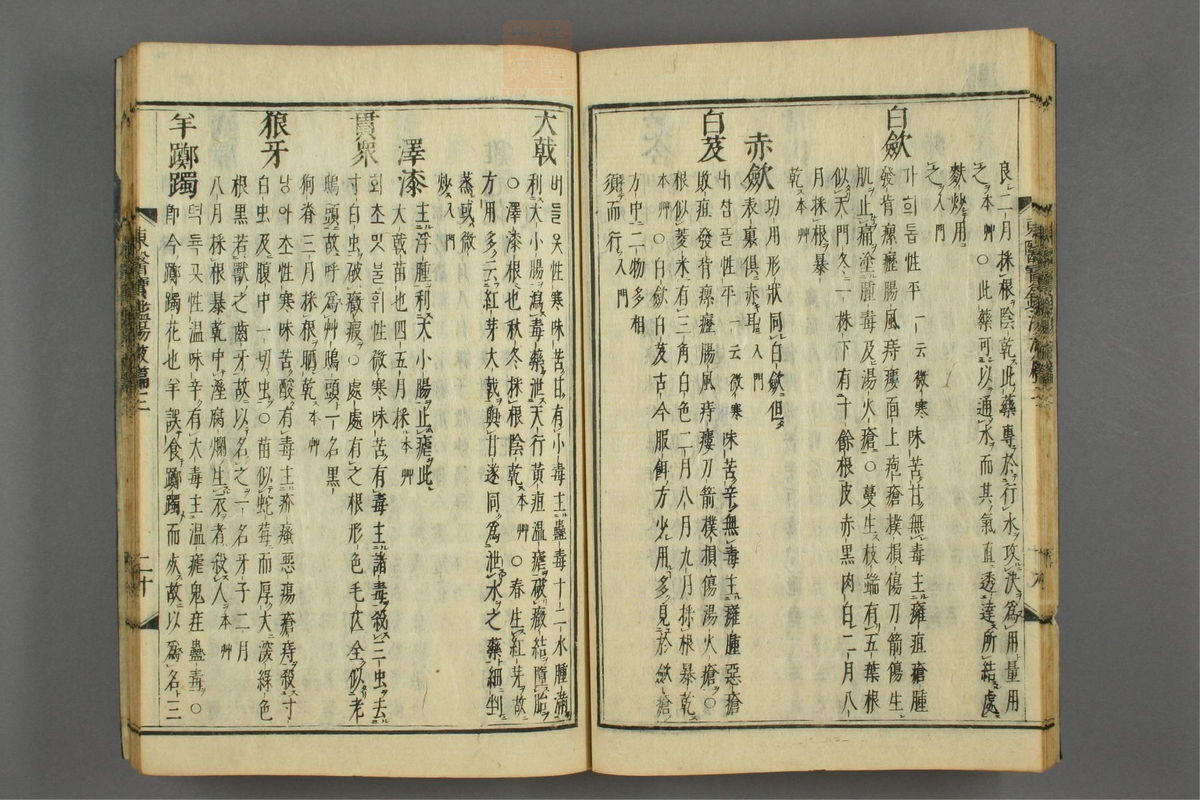 良二月採根陰乾此藥專於行水攻決爲用量用
之本艸○此藥可以通水而其氣直透達所結處
麩炒用
之入門
白歛
가희톱性平一云微寒味苦甘無毒主癰疽瘡腫
發背瘰癧腸風痔瘻面上疱瘡撲損傷刀箭傷生
肌止痛塗腫毒及湯火瘡○蔓生枝端有五葉根
似天門冬一株下有十餘根皮赤黑肉白二月八
月採根暴
乾本艸
赤歛
功用形狀同白歛但
表裏俱赤耳入門
白芨
性平一云微寒味苦辛無毒主癰腫惡瘡
敗疽發背瘰癧腸風痔瘻刀箭撲損傷湯火瘡○
根似菱米有三角白色二月八月九月採根暴乾
本艸○白歛白芨古今服餌方少用多見於歛瘡
方中二物多相
須而行入門
東醫寶鑑湯液篇三
十九
大戟
버들옷性寒味苦甘有小毒主蠱毒十二水腫滿
利大小腸瀉毒藥泄天行黃疸溫瘧破癥結墮胎
○澤漆根也秋冬採根陰乾本艸○春生紅芽故
方用多云紅芽大戟與甘遂同爲泄水之藥細剉
蒸或微
炒入門
澤漆
主浮腫利大小腸止瘧此
大戟苗也四五月採本艸
貫衆
회초밋불휘性微寒味苦有毒主諸毒殺三虫去
寸白虫破癥瘕○處處有之根形色毛芒全似老
鴟頭故呼爲草鴟頭一名黑
狗脊三月採根曬乾本艸
狼牙
낭아초性寒味苦酸有毒主疥瘙惡瘍瘡痔殺寸
白虫及腹中一切虫○苗似蛇莓而厚大深綠色
根黑若獸之齒牙故以名之一名牙子二月
八月採根暴乾中濕腐爛生衣者殺人本艸
羊躑躅
텩툑곳性溫味辛有大毒主溫瘧鬼疰蠱毒○
卽今躑躅花也羊誤食躑躅而死故以爲名三
東醫寶鑑湯液篇三
二十